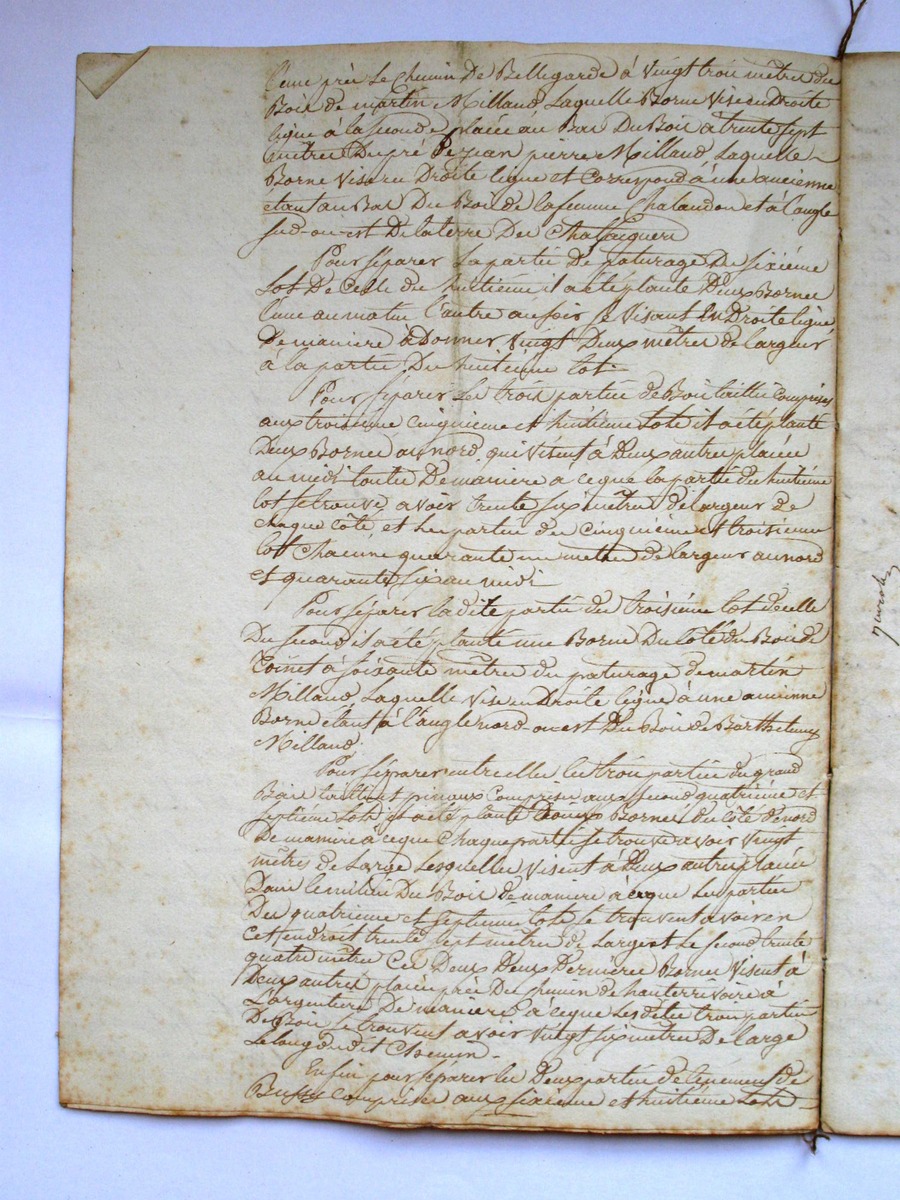 l'une près le Chemin de Bellegarde à vingt trois mètres du
Bois de martin Milland Laquelle Borne Vise en Droite
ligne à la seconde placée au Bas Du Bois à trente sept
mètres Du pré De jean pierre Milland Laquelle
Borne Vise en Droite ligne et Correspond à une ancienne
étant au Bas Du Bois de la femme Chalandon et à l'angle
sud-ouest De la terre Des
Pour séparer La partie de paturage Du sixième
Lot De Celle du huitième il a été planté Deux Bornes
l'une au matin l'autre au soir se Visent En Droite ligne
De maniere à Donner Vingt Deux mètres de largeur
à la partie Du huitième lot.
Pour séparer Les trois partie de Bois taillis Comprises
aux troisième cinquième et huitième Lots il a été planté
Deux Bornes au nord qui Visent à Deux autres placée
au midi toutes De maniere a ceque la partie du huitième
lot se trouve avoir trente six mètres de largeur de
chaque côté et Les partie des Cinquième et troisieme
lots Chacune quarante un mètre de largeur au nord
et quarante six au midi
Pour séparer la dite partie du troisième lot de celle
Du second il a été planté une Borne Du Côté du Bois de
Coinet à soixante mètres du paturage de martin
Milland Laquelle Vise en Droite ligne à une ancienne
Borne étant à l'angle nord-ouest Du Bois de Barthelemy
Milland.
Pour séparer entre elles les trois partie du grand
Bois taillis et pinaux Comprises aux second quatrième et
septième Lots il a été planté Deux Bornes du côté de nord
De maniere à ceque Chaque partie se trouve avoir Vingt
mètres de Large Lesquelles Visent à Deux autres placée
Dans le milieu Du Bois de maniere à ceque Les parties
Des quatrieme et septieme lots se trouvent avoir en
cet endroit trente sept mètres de Large et Le second trente
quatre mètres Ces Deux Deux Dernières Bornes Visent à
Deux autres placées près Du Chemin de hauterivoire à
Largentiere De maniere à ceque Lesdites trois partie
De Bois se trouvent avoir Vingt six mètres De large
Le long dudit Chemin.
Enfin pour séparer les Deux partie de tènement de
Bussy Comprises aux sixieme et huitieme Lots